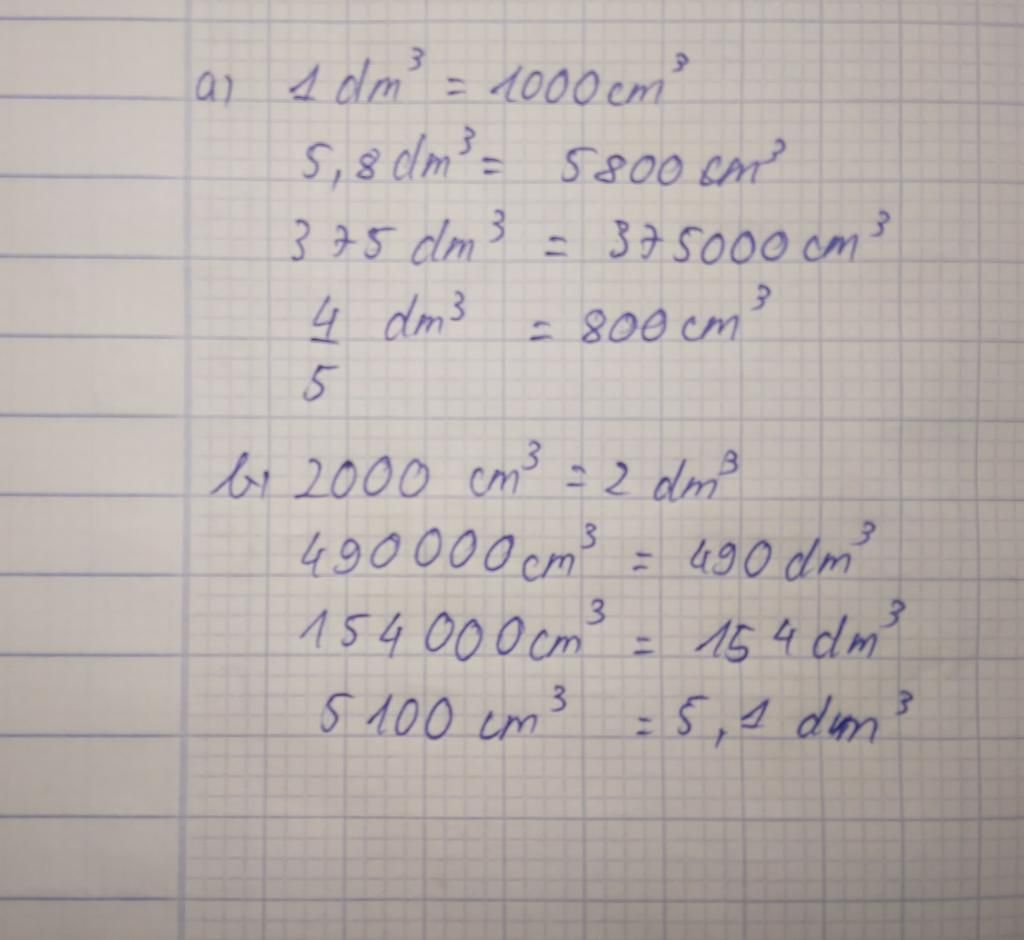 a) 1 dm³ = 1000 cm³
5,8 dm³ = 5800 cm³
375 dm³ = 375000 cm³
4/5 dm³ = 800 cm³
b) 2000 cm³ = 2 dm³
490000 cm³ = 490 dm³
154 000 cm³ = 154 dm³
5100 cm³ = 5,1 dm³